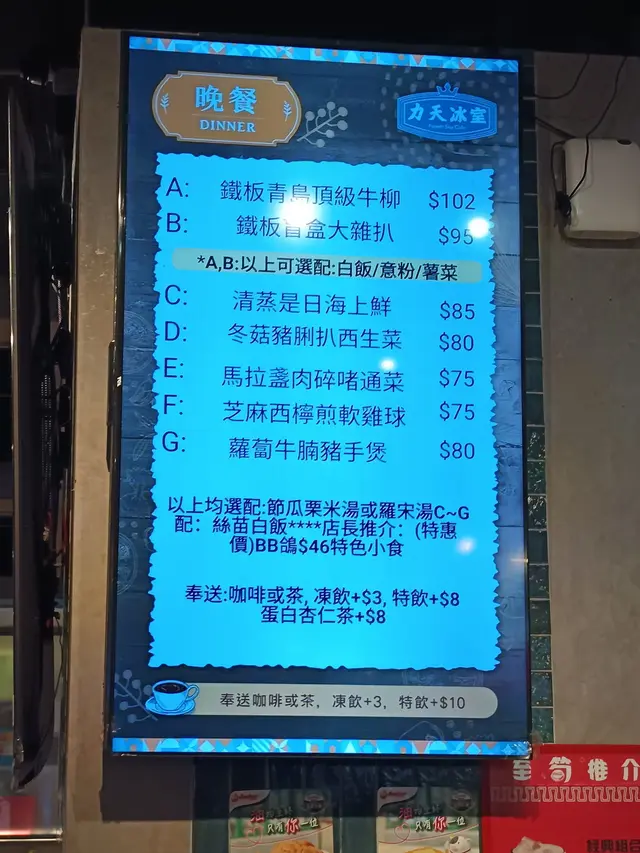 晚餐
DINNER
力天冰室
A: 鐵板青島頂級牛柳 $102
B: 鐵板盲盒大雜扒 $95
*A,B:以上可選配:白飯/意粉/薯菜
C: 清蒸是日海上鮮 $85
D: 冬菇豬脷扒西生菜 $80
E: 馬拉盞肉碎啫通菜 $75
F: 芝麻西檸煎軟雞球 $75
G: 蘿蔔牛腩豬手煲 $80
以上均選配:節瓜栗米湯或羅宋湯C~G
配：絲苗白飯****店長推介：(特惠
價)BB鴿$46特色小食
奉送:咖啡或茶, 凍飲+$3, 特飲+$8
蛋白杏仁茶+$8
奉送咖啡或茶，凍飲+3，特飲+$10
至筍推介
只有你一位
只有你一位
經典組合